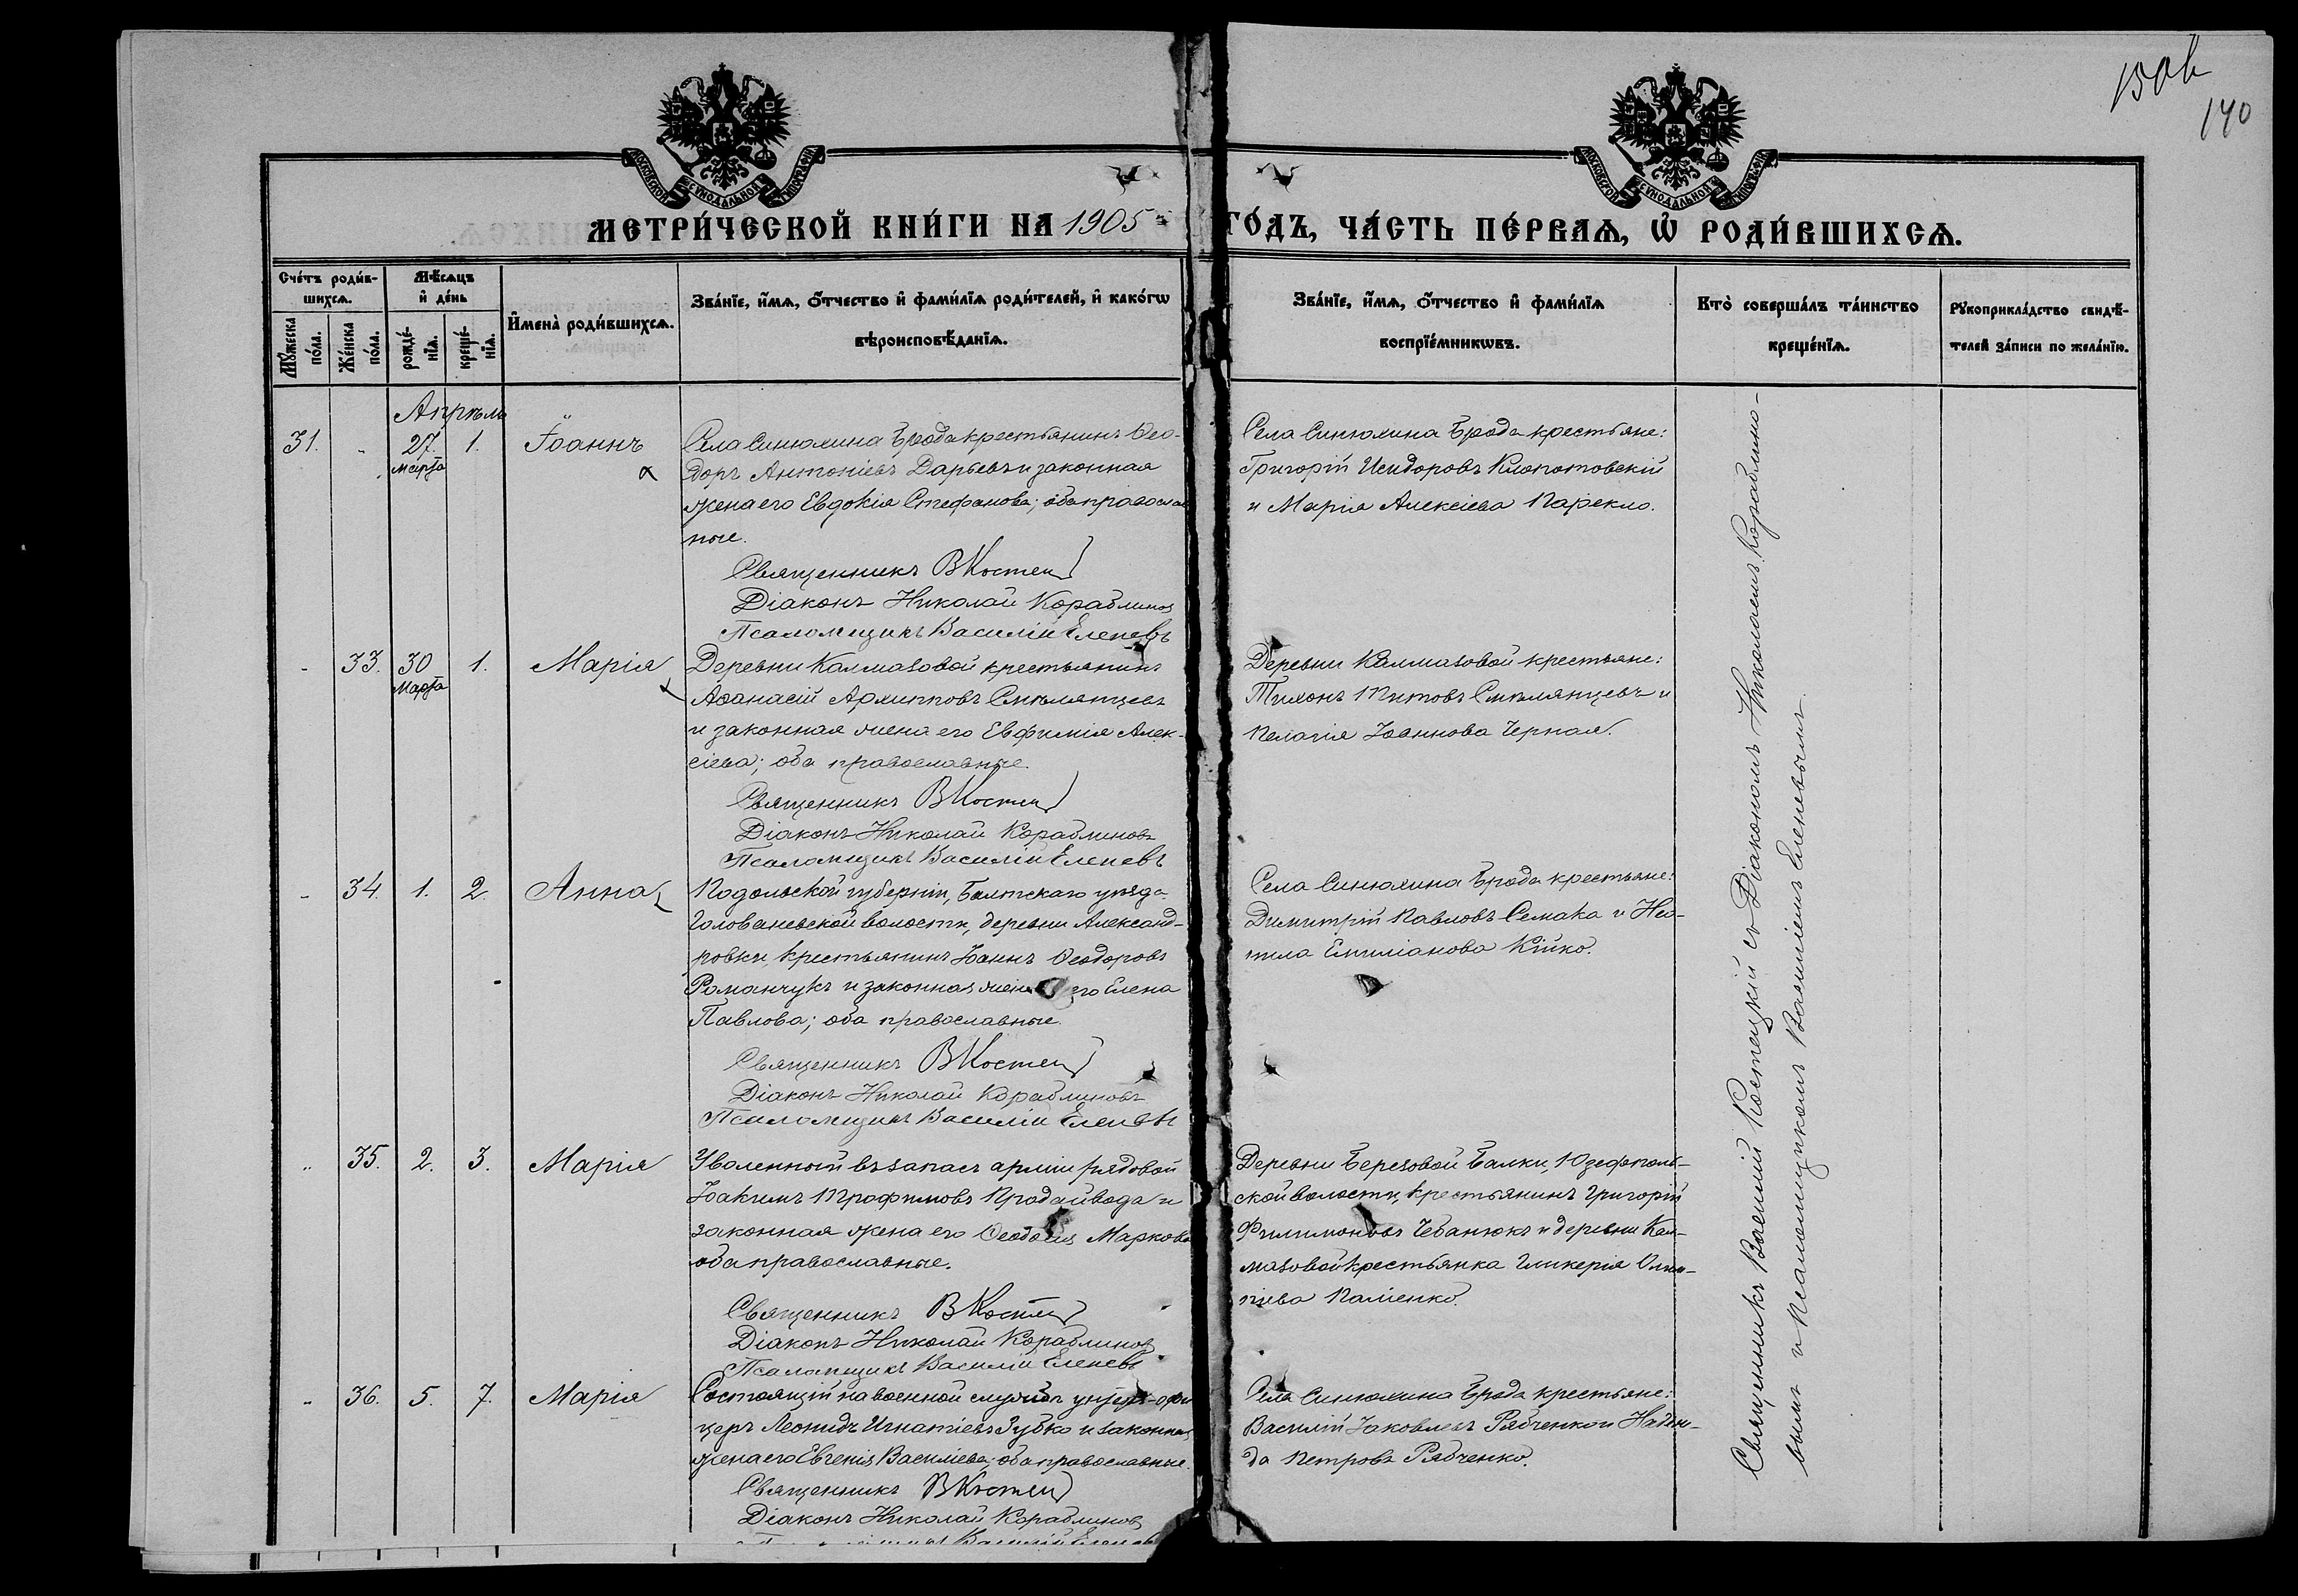 150в
140
МОСКОВСКОЙ СѴНОДАЛЬНОЙ ТИПОГРАФІИ
МОСКОВСКОЙ СѴНОДАЛЬНОЙ ТИПОГРАФІИ
МЕТРИ́ЧЕСКОЙ КНИ́ГИ НА 1905 ГО́ДЪ, ЧА́СТЬ ПЕ́РВАѦ, Ѡ҆ РОДИ́ВШИХСѦ.
Сче́тъ роди́в-
шихсѧ.
Мꙋ́жеска
по́ла.
Же́нска
по́ла.
Мѣ́сѧцъ
и҆ де́нь
рожде́-
нїѧ.
креще́-
нїѧ.
И҆мена̀ роди́вшихсѧ.
Зва́нїе, и҆́мѧ, ѻ҆́тчество и҆ фами́лїѧ роди́телей, и҆ како́гѡ
вѣроисповѣ́данїѧ.
Зва́нїе, и҆́мѧ, ѻ҆́тчество и҆ фами́лїѧ
воспрїе́мникѡвъ.
Кто̀ соверша́лъ та́инство
креще́нїѧ.
Рꙋкоприкла́дство свидѣ́-
телей за́писи по жела́нїю.
Апрѣль
31. - 27. Марта 1. Іоаннъ
Села Синюхина Брода крестьянинъ Ѳео-
доръ Антоніевъ Дарьевъ и законная
жена его Евдокія Стефанова; оба православ
ные.
Священникъ В Костец
Діаконъ Николай Кораблинов
Псаломщикъ Василій Еленевъ
Села Синюхина Брода крестьяне:
Григорій Исидоровъ Клопотовскій
и Марія Алексіева
- 33. 30 Марта 1. Марія
Деревни Калмазовой крестьянинъ
Аѳанасій Архипповъ Смѣлянцевъ
и законная жена его Евфимія Алек-
сіева; оба православные.
Священникъ В Костец
Діаконъ Николай Кораблиновъ
Псаломщикъ Василій Еленевъ
Деревни Калмазовой крестьяне:
Тихонъ Титовъ Смѣлянцевъ и
Пелагія Іоаннова Черная.
- 34. 1. 2. Анна
Подольской губерніи, Балтскаго уѣзда
Голованевской волости, деревни Александ-
ровки, крестьянинъ Іоаннъ Ѳеодоровъ
Романчукъ и законная жена его Елена
Павлова; оба православные.
Священникъ В Костец
Діаконъ Николай Кораблиновъ
Псаломщикъ Василій Еленевъ
Села Синюхина Брода крестьяне:
Димитрій Павловъ Семака и Нео-
нила Емиліанова Кійко.
- 35. 2. 3. Марія
Уволенный въ запасъ арміи рядовой
Іоакимъ Трофимовъ Продайвода и
законная жена его Ѳеодосія Маркова
оба православные.
Священникъ В Костец
Діаконъ Николай Кораблинов
Псаломщикъ Василій Еленевъ
Деревни Березовой Балки, Юзефполь-
ской волости, крестьянинъ Григорій
Филимоновъ Чебанюкъ и деревни Кал-
мазовой крестьянка Гликерія Олим-
піева Паліенко.
- 36. 5. 7. Марія
Состоящій на военной службѣ унтеръ-офи
церъ Леонидъ Игнатіевъ Зубко и законная
жена его Евгенія Василіева; оба православные.
Священникъ В Костец
Діаконъ Николай Кораблинов
Василій Еленевъ
Села Синюхина Брода крестьяне:
Василій Іаковлевъ Рябченко и Надеж-
да Петровъ Рябченко.
Священникъ Василій Костецкій съ Діакономъ Николаемъ Кораблино-
вымъ и Псаломщикомъ Василіемъ Еленевымъ